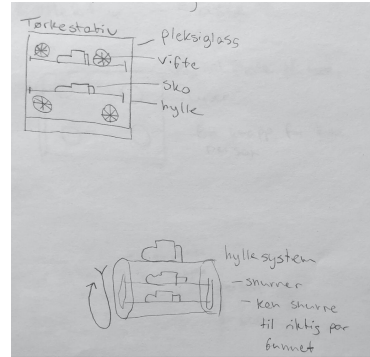 Tørkestativ
pleksiglass
vifte
sko
hylle
hyllesystem
- snurrer
- kan snurre
til riktig par
funnet